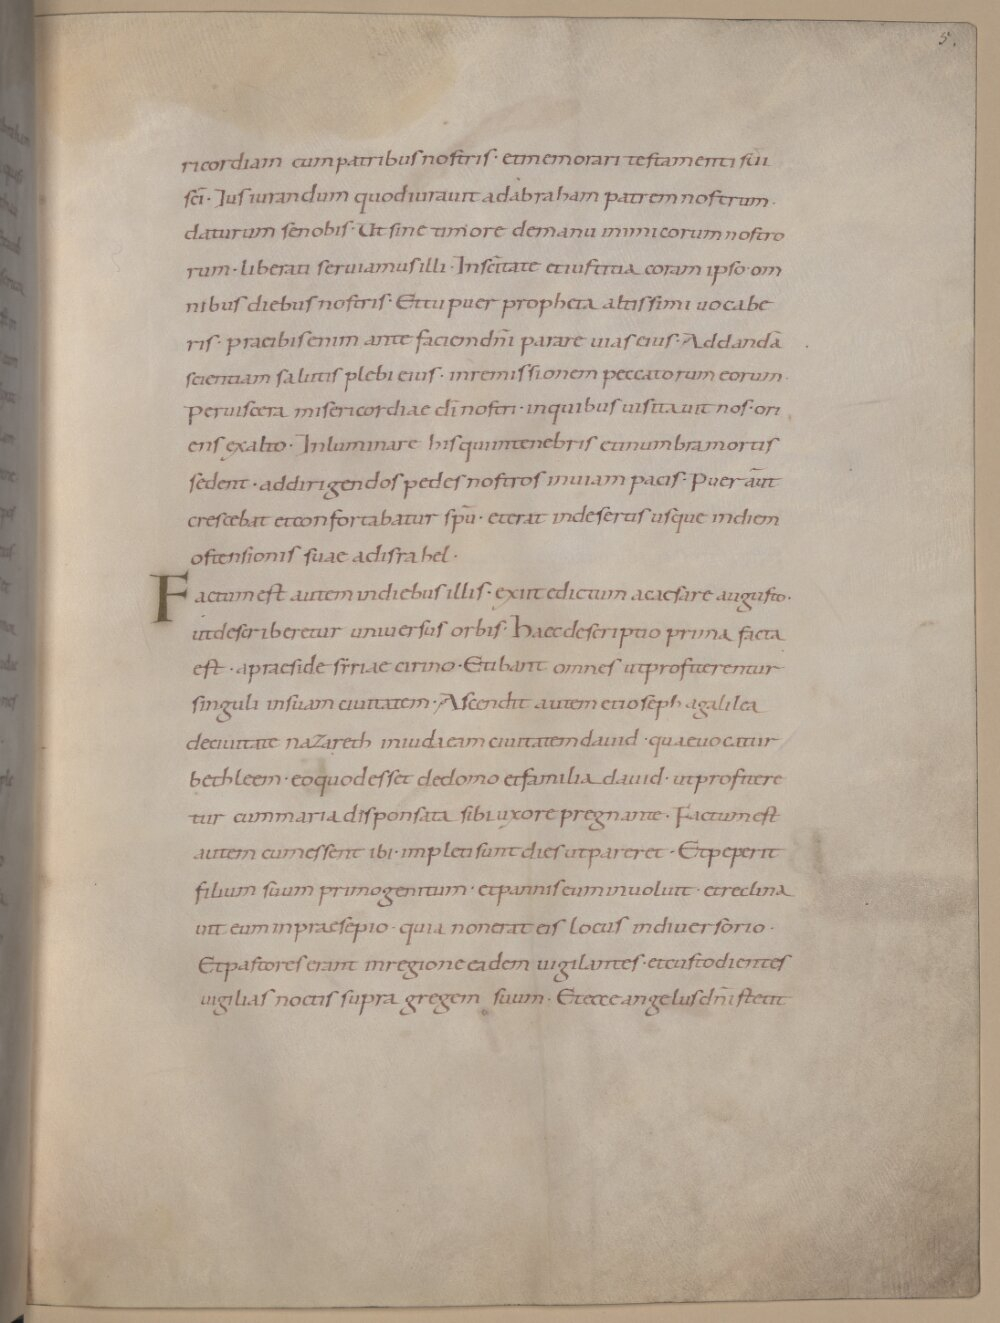 5.
ricordiam cum patribus nostris · et memorari testamenti sui
sc̄i · Jusiurandum quod iurauit ad abraham patrem nostrum ·
daturum se nobis · Ut sine timore de manu inimicorum nostro
rum · liberati seruiamus illi · In sc̄itate et iustitia coram ipso om
nibus diebus nostris · Et tu puer propheta altissimi uocabe
ris · praeibis enim ante faciem dn̄i parare uias eius · Ad dandā
scientiam salutis plebi eius · in remissionem peccatorum eorum ·
Per uiscera misericordiae dī nostri · in quibus uisitauit nos · ori
ens ex alto · Inluminare his qui in tenebris et in umbra mortis
sedent · ad dirigendos pedes nostros in uiam pacis · Puer aūt
crescebat et confortabatur spū · et erat in desertis usque in diem
ostensionis suae ad israhel ·
Factum est autem in diebus illis · exiit edictum a caesare augusto ·
ut describeretur uniuersus orbis · Haec descriptio prima facta
est · a praeside syriae cirino · Et ibant omnes ut profiterentur
singuli in suam ciuitatem · Ascendit autem et ioseph a galilea
de ciuitate nazareth in iudaeam ciuitatem dauid · quae uocatur
bethleem · eo quod esset de domo et familia dauid · ut profitere
tur cum maria disponsata sibi uxore pregnante · Factum est
autem cum essent ibi · impleti sunt dies ut pareret · Et peperit
filium suum primogenitum · et pannis eum inuoluit · et reclina
uit eum in praesepio · quia non erat eis locus in diuersorio ·
Et pastores erant in regione eadem uigilantes · et custodientes
uigilias noctis supra gregem suum · Et ecce angelus dn̄i stetit